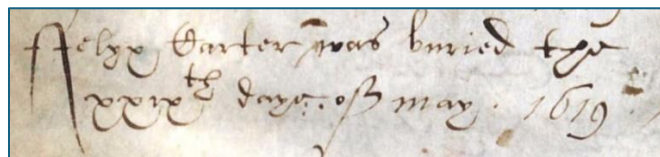 ffelyx Carter was buried the
xxix th daye of may . 1619 .